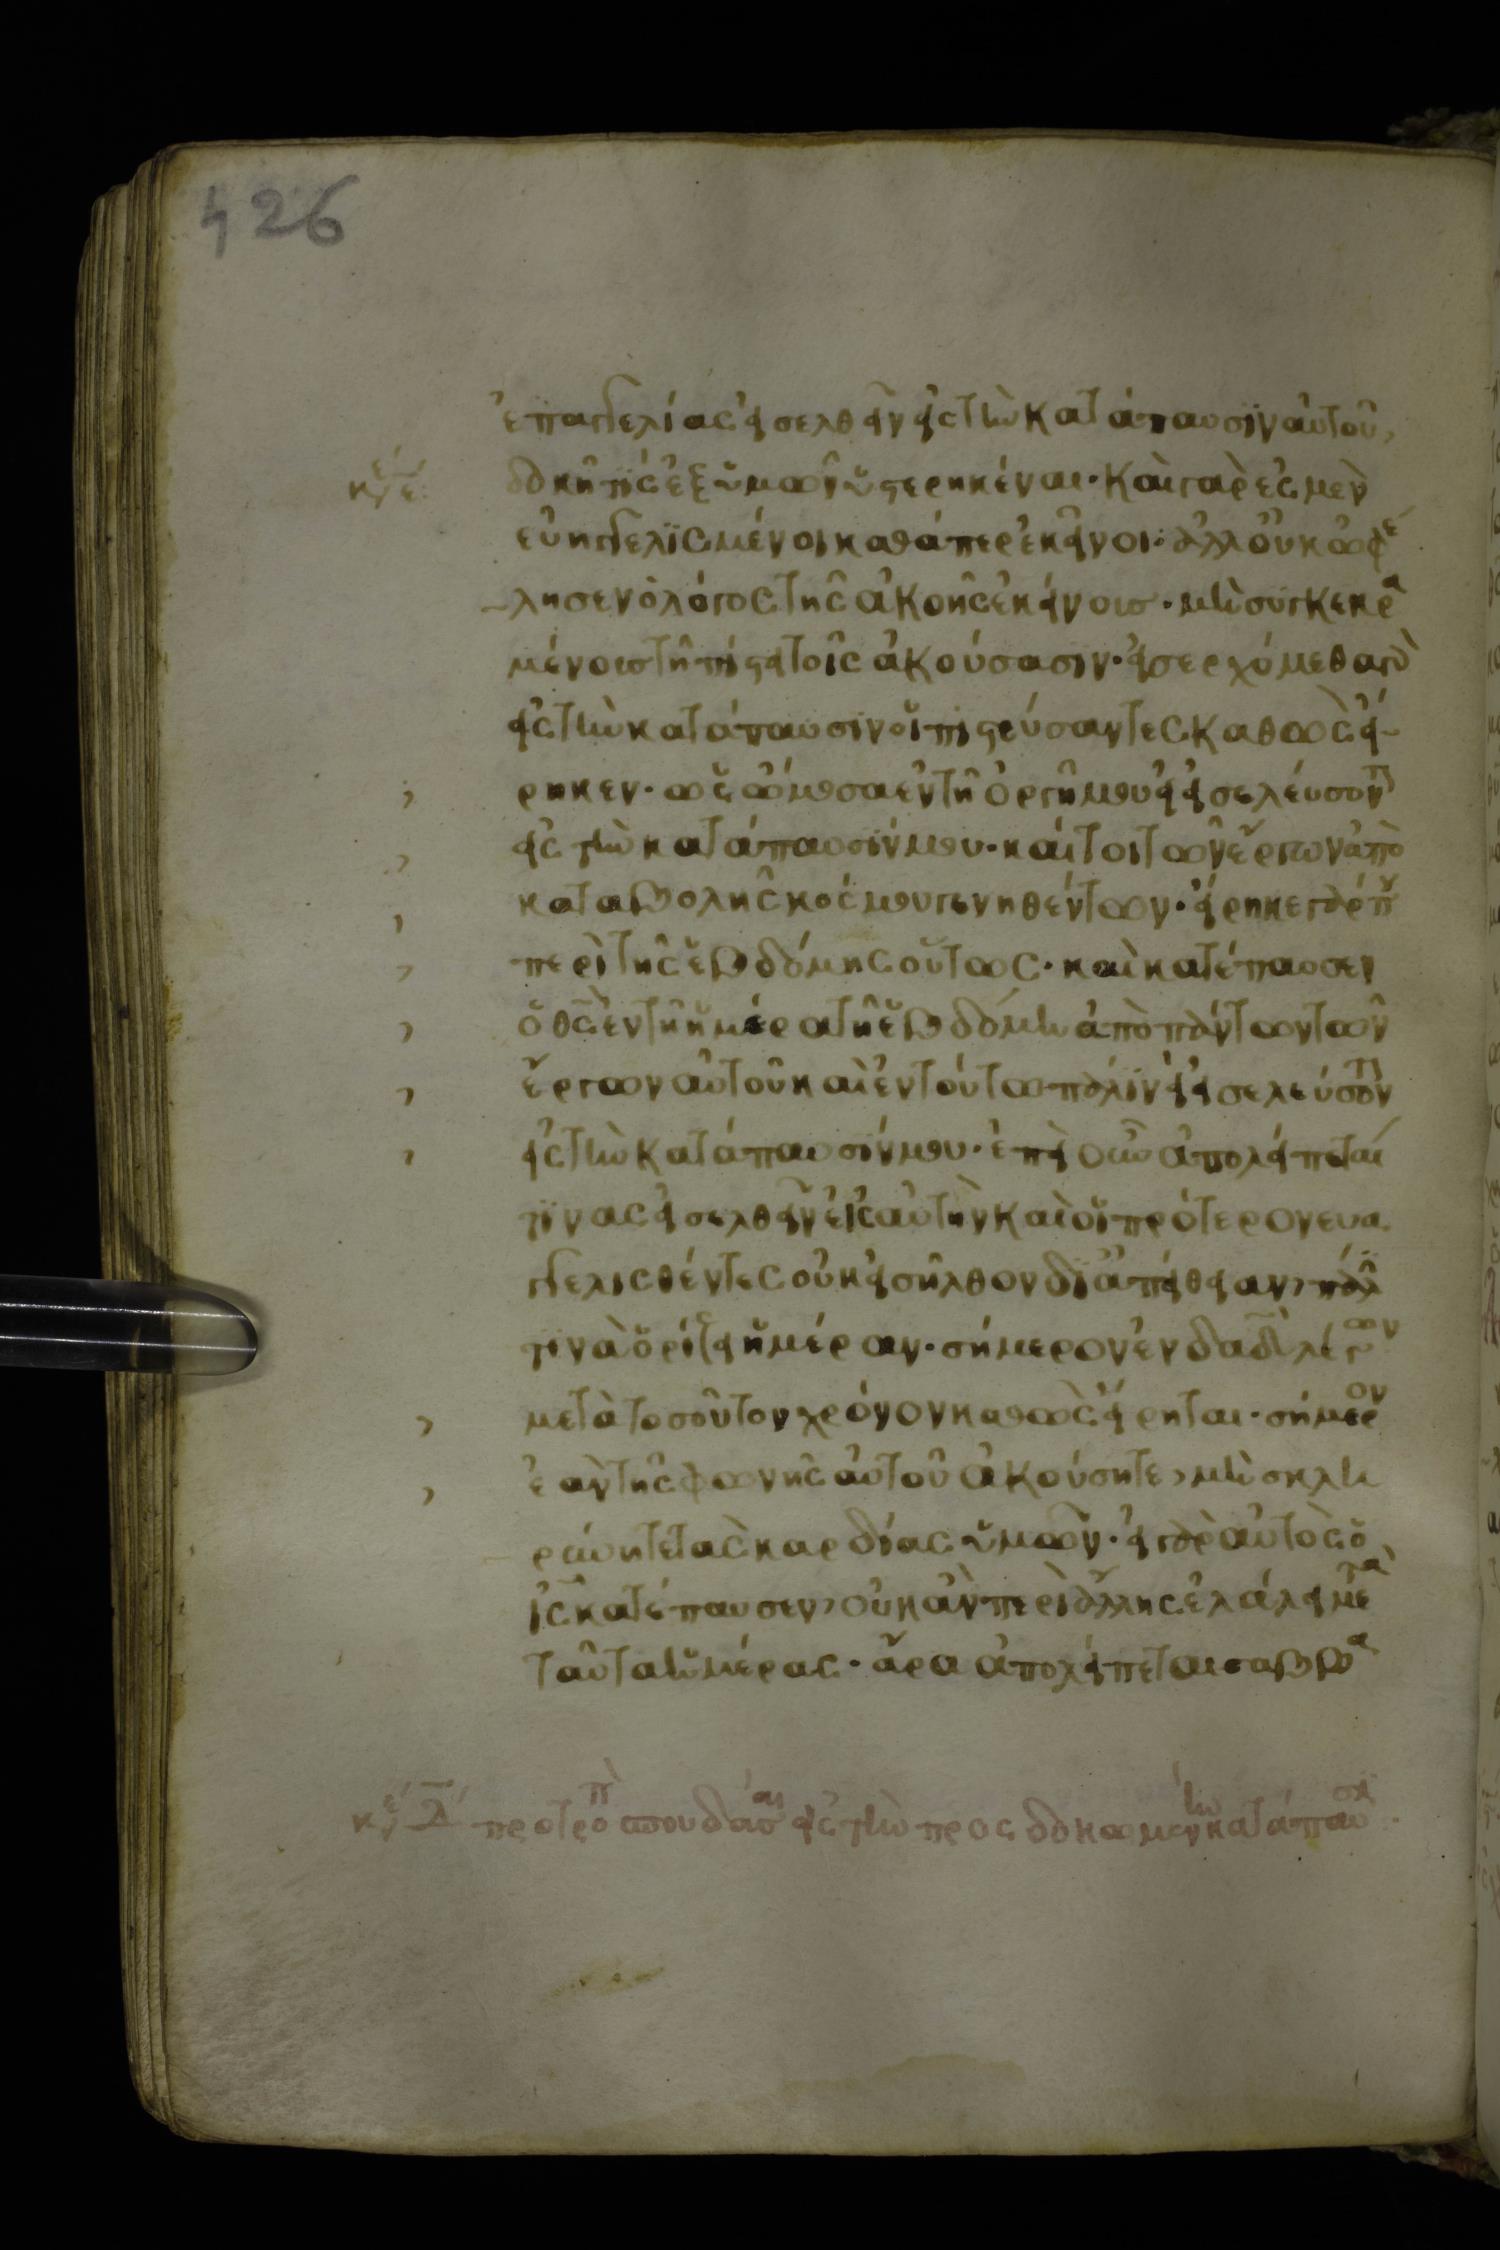 426
ἐπαγγελίας εἰσελθεῖν εἰς τὴν κατάπαυσιν αὐτοῦ,
δοκῆ τὶς ἐξ ὑμῶν ὑστερηκέναι· καὶ γάρ ἐσμεν
εὐηγγελισμένοι καθάπερ ἐκεῖνοι· ἀλλ οὐκ ὠφέ
λησεν ὁ λόγος τῆς ἀκοῆς ἐκείνοις· μὴ συγκεκρα
μένοις τῆ πίστει τοῖς ἀκούσασιν· εἰσερχόμεθα γὰρ
εἰς τὴν κατάπαυσιν οἱ πιστεύσαντες καθὼς εἴ
ρηκεν· ὡς ὤμοσα ἐν τῆ ὀργῆ μου εἰ εἰσελεύσονται
εἰς τὴν κατάπαυσίν μου· καίτοι τῶν ἔργων ἀπὸ
καταβολῆς κόσμου γενηθέντων· εἴρηκε γάρ που
περὶ τῆς ἑβδόμης οὕτως· καὶ κατέπαυσεν
ὁ θς ἐν τῆ ἡμέρα τῆ ἑβδόμη ἀπὸ πάντων τῶν
ἔργων αὐτοῦ καὶ ἐν τούτω πάλιν εἰ εἰσελεύσονται
εἰς τὴν κατάπαυσίν μου· ἐπεὶ οὖν ἀπολείπεται
τινας εἰσελθεῖν εἰς αὐτὴν καὶ οἱ πρότερον ευα
γγελισθέντες οὐκ εἰσῆλθον δι ἀπείθειαν, πάλιν
τινὰ ὁρίζει ἡμέραν· σήμερον ἐν δαδ λέγων
μετὰ τοσοῦτον χρόνον καθὼς εἴρηται· σήμερον
ἐαν τῆς φωνῆς αὐτοῦ ἀκούσητε, μὴ σκλη
ρύνητε τὰς καρδίας ὑμῶν· εἰ γὰρ αὐτοὺς ὁ
ις κατέπαυσεν, οὐκ ἀν περὶ ἄλλης ἐλάλει μετὰ
ταῦτα ἡμέρας· ἄρα ἀπολείπεται σαββα
προτροπὴ σπουδάσαι εἰς τὴν προσδοκωμένην κατάπαυσιν